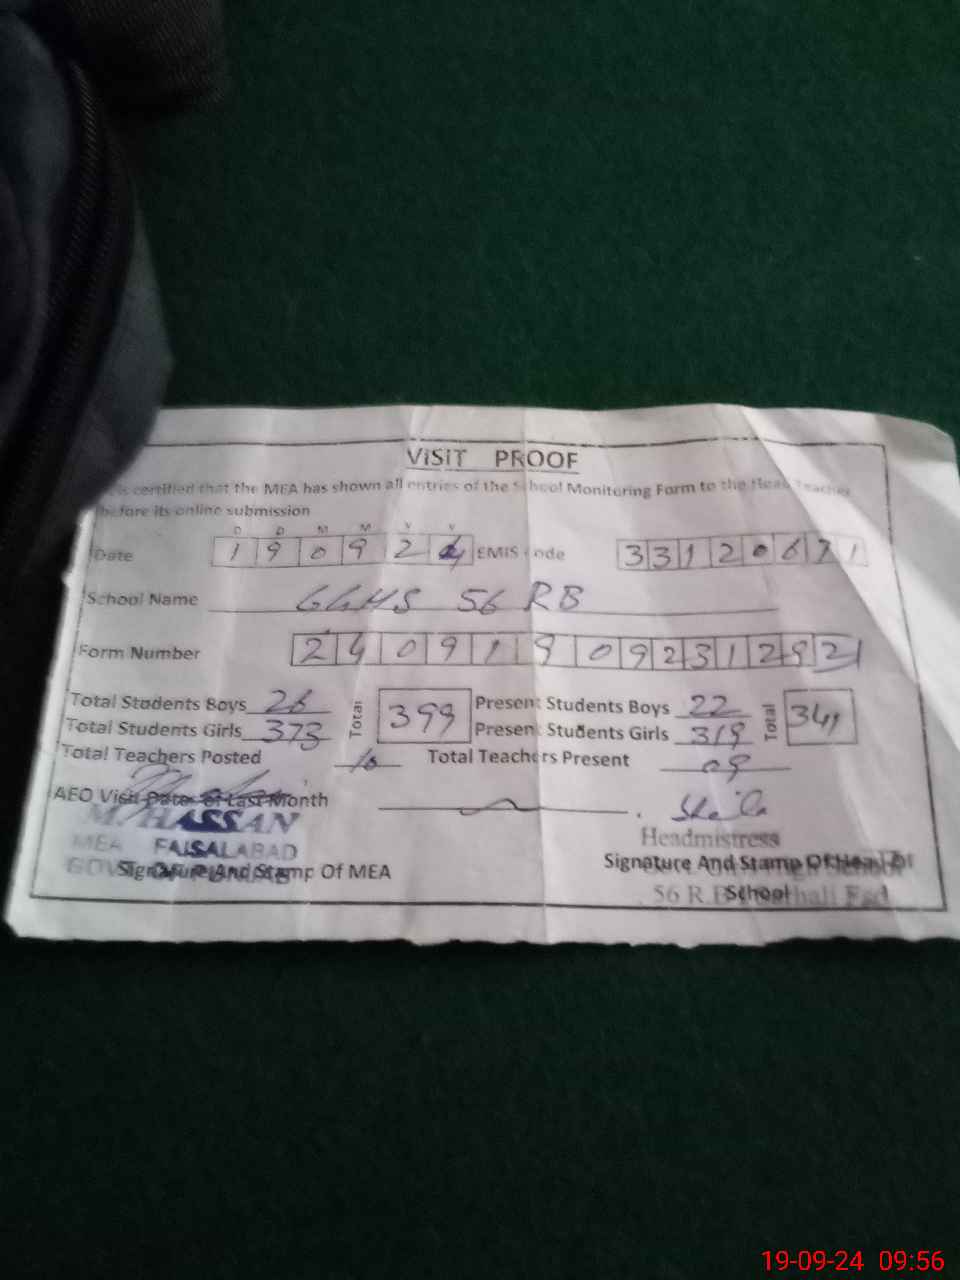 VISIT PROOF
is certified that the MEA has shown all entries of the School Monitoring Form to the Head Teacher
before its online submission
D D M M Y Y
Date 1 9 0 9 2 4 EMIS Code 3 3 1 2 0 6 7 1
School Name GGHS 56 RB
Form Number 2 4 0 9 1 9 0 9 2 3 1 2 9 2
Total Students Boys 26 Total 399 Present Students Boys 22 Total 341
Total Students Girls 373 Present Students Girls 319
Total Teachers Posted 10 Total Teachers Present 09
AEO Visit Date of Last Month
M. HASSAN
MEA FAISALABAD
Headmistress
Signature And Stamp Of MEA Signature And Stamp Of Head Of
School
56 R.B
19-09-24 09:56